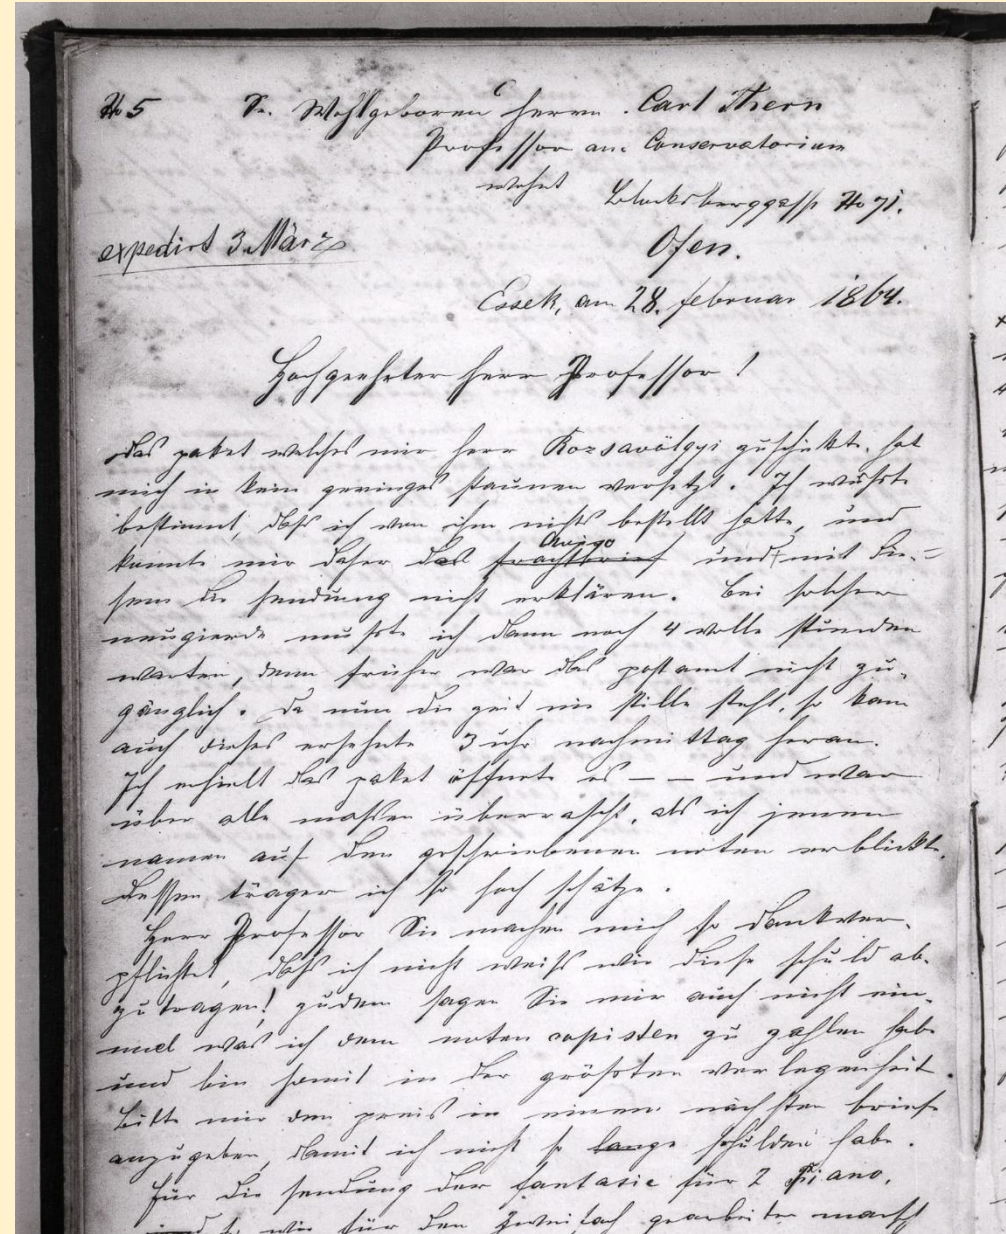 No 5 Sr. Wohlgeboren Herrn Carl Thern
Professor am Conservatorium
wohnt Blocksberggasse No 71.
Ofen.
expedirt 3. März
Essek, am 28. februar 1864.
Hochgeehrter Herr Professor!
das paket welches mir herr Rozsavölgyi zuschikte, hat
mich in kein geringes staunen versetzt. Ich wußte
bestimmt, daß ich von ihm nichts bestellt hatte, und
konnte mir daher das frachtbrief Aviso und mit die=
sem die sendung nicht erklären. Bei solcher
neugierde mußte ich dann noch 4 volle stunden
warten, denn früher war das postamt nicht zu
gänglich. Da nun die zeit nie stille steht, so kam
auch dieses ersehnte 3 uhr nachmittag heran.
Ich erhielt das paket öffnete es – – und war
über alle maßen überrascht, als ich jenen
namen auf den geschriebenen noten erblickte,
dessen träger ich so hoch schätze.
Herr Professor Sie machen mich so dankver-
pflichtet, daß ich nicht weiß wie diese schuld ab-
zutragen! zudem sagen Sie mir auch nicht ein-
mal was ich dem noten copisten zu zahlen habe
und bin somit in der größten verlegenheit.
Bitte mir den preis in einem nächsten briefe
anzugeben, damit ich nicht so lange schulden habe.
für die sendung der fantasie für 2 Piano,
wie für den zweifach gearbeiteten marsch